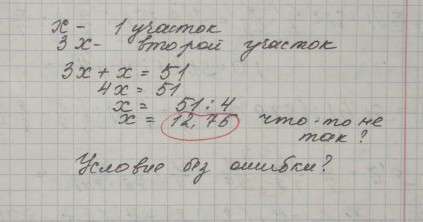 x - 1 участок
3x - второй участок
3x + x = 51
4x = 51
x = 51 : 4
x = 12,75 что-то не
так?
Условие без ошибки?